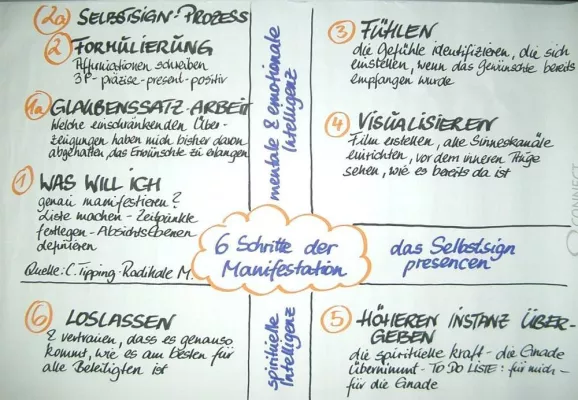 2a SELBSTSIGN-PROZESS
2 FORMULIERUNG
Affirmationen schreiben
3P - präzise - present - positiv
1a GLAUBENSSATZ-ARBEIT
Welche einschränkenden Über-
zeugungen haben mich bisher davon
abgehalten, das Erwünschte zu erlangen
1 WAS WILL ICH
genau manifestieren?
Liste machen - Zeitpunkte
festlegen - Absichtsebenen
definieren
Quelle: C. Tipping - Radikale M.
mentale & emotionale
Intelligenz
3 FÜHLEN
die Gefühle identifizieren, die sich
einstellen, wenn das Gewünschte bereits
empfangen wurde
4 VISUALISIEREN
Film erstellen, alle Sinneskanäle
einrichten, vor dem inneren Auge
sehen, wie es bereits da ist
CONNECT
6 Schritte der
Manifestation
das Selbst.sign
presencen
6 LOSLASSEN
& vertrauen, dass es genauso
kommt, wie es am besten für
alle Beteiligten ist
spirituelle
Intelligenz
5 HÖHEREN INSTANZ ÜBER-
GEBEN
die spirituelle Kraft - die Gnade
übernimmt - TO DO LISTE: für mich -
für die Gnade